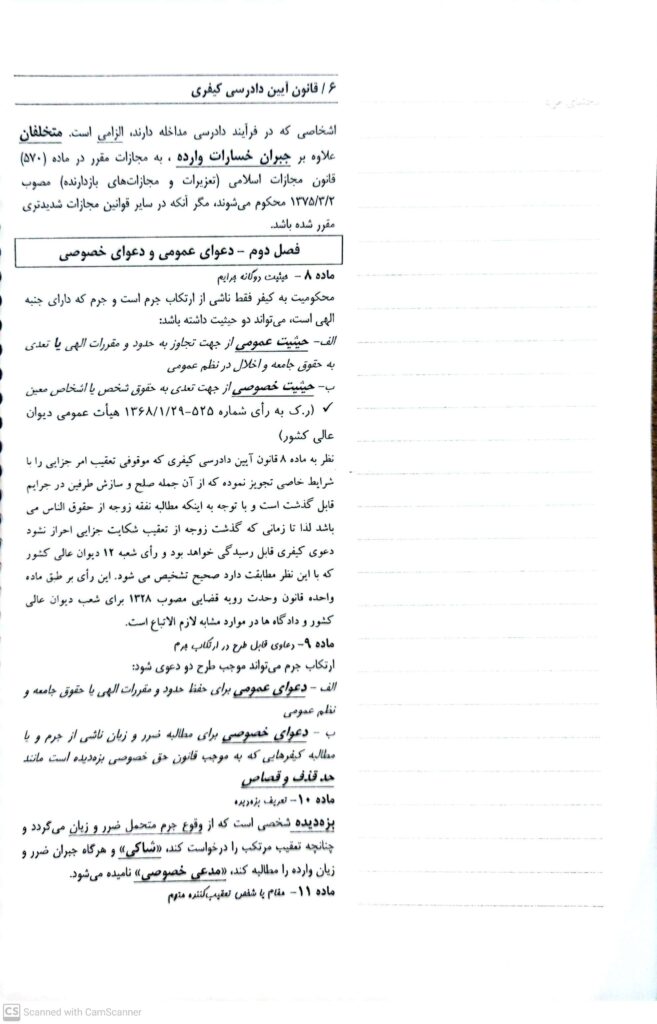 ۶ / قانون آیین دادرسی کیفری
اشخاصی که در فرآیند دادرسی مداخله دارند، الزامی است. متخلفان
علاوه بر جبران خسارات وارده ، به مجازات مقرر در ماده (۵۷۰)
قانون مجازات اسلامی (تعزیرات و مجازات‌های بازدارنده) مصوب
۱۳۷۵/۳/۲ محکوم می‌شوند، مگر آنکه در سایر قوانین مجازات شدیدتری
مقرر شده باشد.
فصل دوم – دعوای عمومی و دعوای خصوصی
ماده ۸ – حیثیت دوگانه جرایم
محکومیت به کیفر فقط ناشی از ارتکاب جرم است و جرم که دارای جنبه
الهی است، می‌تواند دو حیثیت داشته باشد:
الف– حیثیت عمومی از جهت تجاوز به حدود و مقررات الهی یا تعدی
به حقوق جامعه و اخلال در نظم عمومی
ب– حیثیت خصوصی از جهت تعدی به حقوق شخص یا اشخاص معین
✓ (ر.ک به رأی شماره ۵۲۵-۱۳۶۸/۱/۲۹ هیأت عمومی دیوان
عالی کشور)
نظر به ماده ۸ قانون آیین دادرسی کیفری که موقوفی تعقیب امر جزایی را با
شرایط خاصی تجویز نموده که از آن جمله صلح و سازش طرفین در جرایم
قابل گذشت است و با توجه به اینکه مطالبه نفقه زوجه از حقوق الناس می
باشد لذا تا زمانی که گذشت زوجه از تعقیب شکایت جزایی احراز نشود
دعوی کیفری قابل رسیدگی خواهد بود و رأی شعبه ۱۲ دیوان عالی کشور
که با این نظر مطابقت دارد صحیح تشخیص می شود. این رأی بر طبق ماده
واحده قانون وحدت رویه قضایی مصوب ۱۳۲۸ برای شعب دیوان عالی
کشور و دادگاه ها در موارد مشابه لازم الاتباع است.
ماده ۹– دعاوی قابل طرح در ارتکاب جرم
ارتکاب جرم می‌تواند موجب طرح دو دعوی شود:
الف – دعوای عمومی برای حفظ حدود و مقررات الهی یا حقوق جامعه و
نظم عمومی
ب – دعوای خصوصی برای مطالبه ضرر و زیان ناشی از جرم و یا
مطالبه کیفرهایی که به موجب قانون حق خصوصی بزه‌دیده است مانند
حد قذف و قصاص
ماده ۱۰– تعریف بزه‌دیده
بزه‌دیده شخصی است که از وقوع جرم متحمل ضرر و زیان می‌گردد و
چنانچه تعقیب مرتکب را درخواست کند، «شاکی» و هرگاه جبران ضرر و
زیان وارده را مطالبه کند، «مدعی خصوصی» نامیده می‌شود.
ماده ۱۱– مقام یا شخص تعقیب‌کننده متهم
CS Scanned with CamScanner